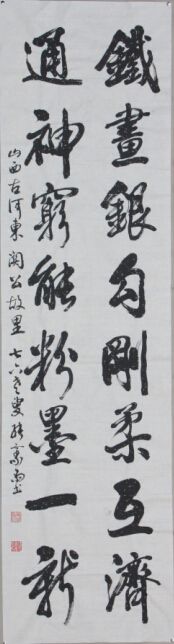 鐵畫銀勾剛柔互濟
通神窮能粉墨一新
山西古河東關公故里 七六老叟